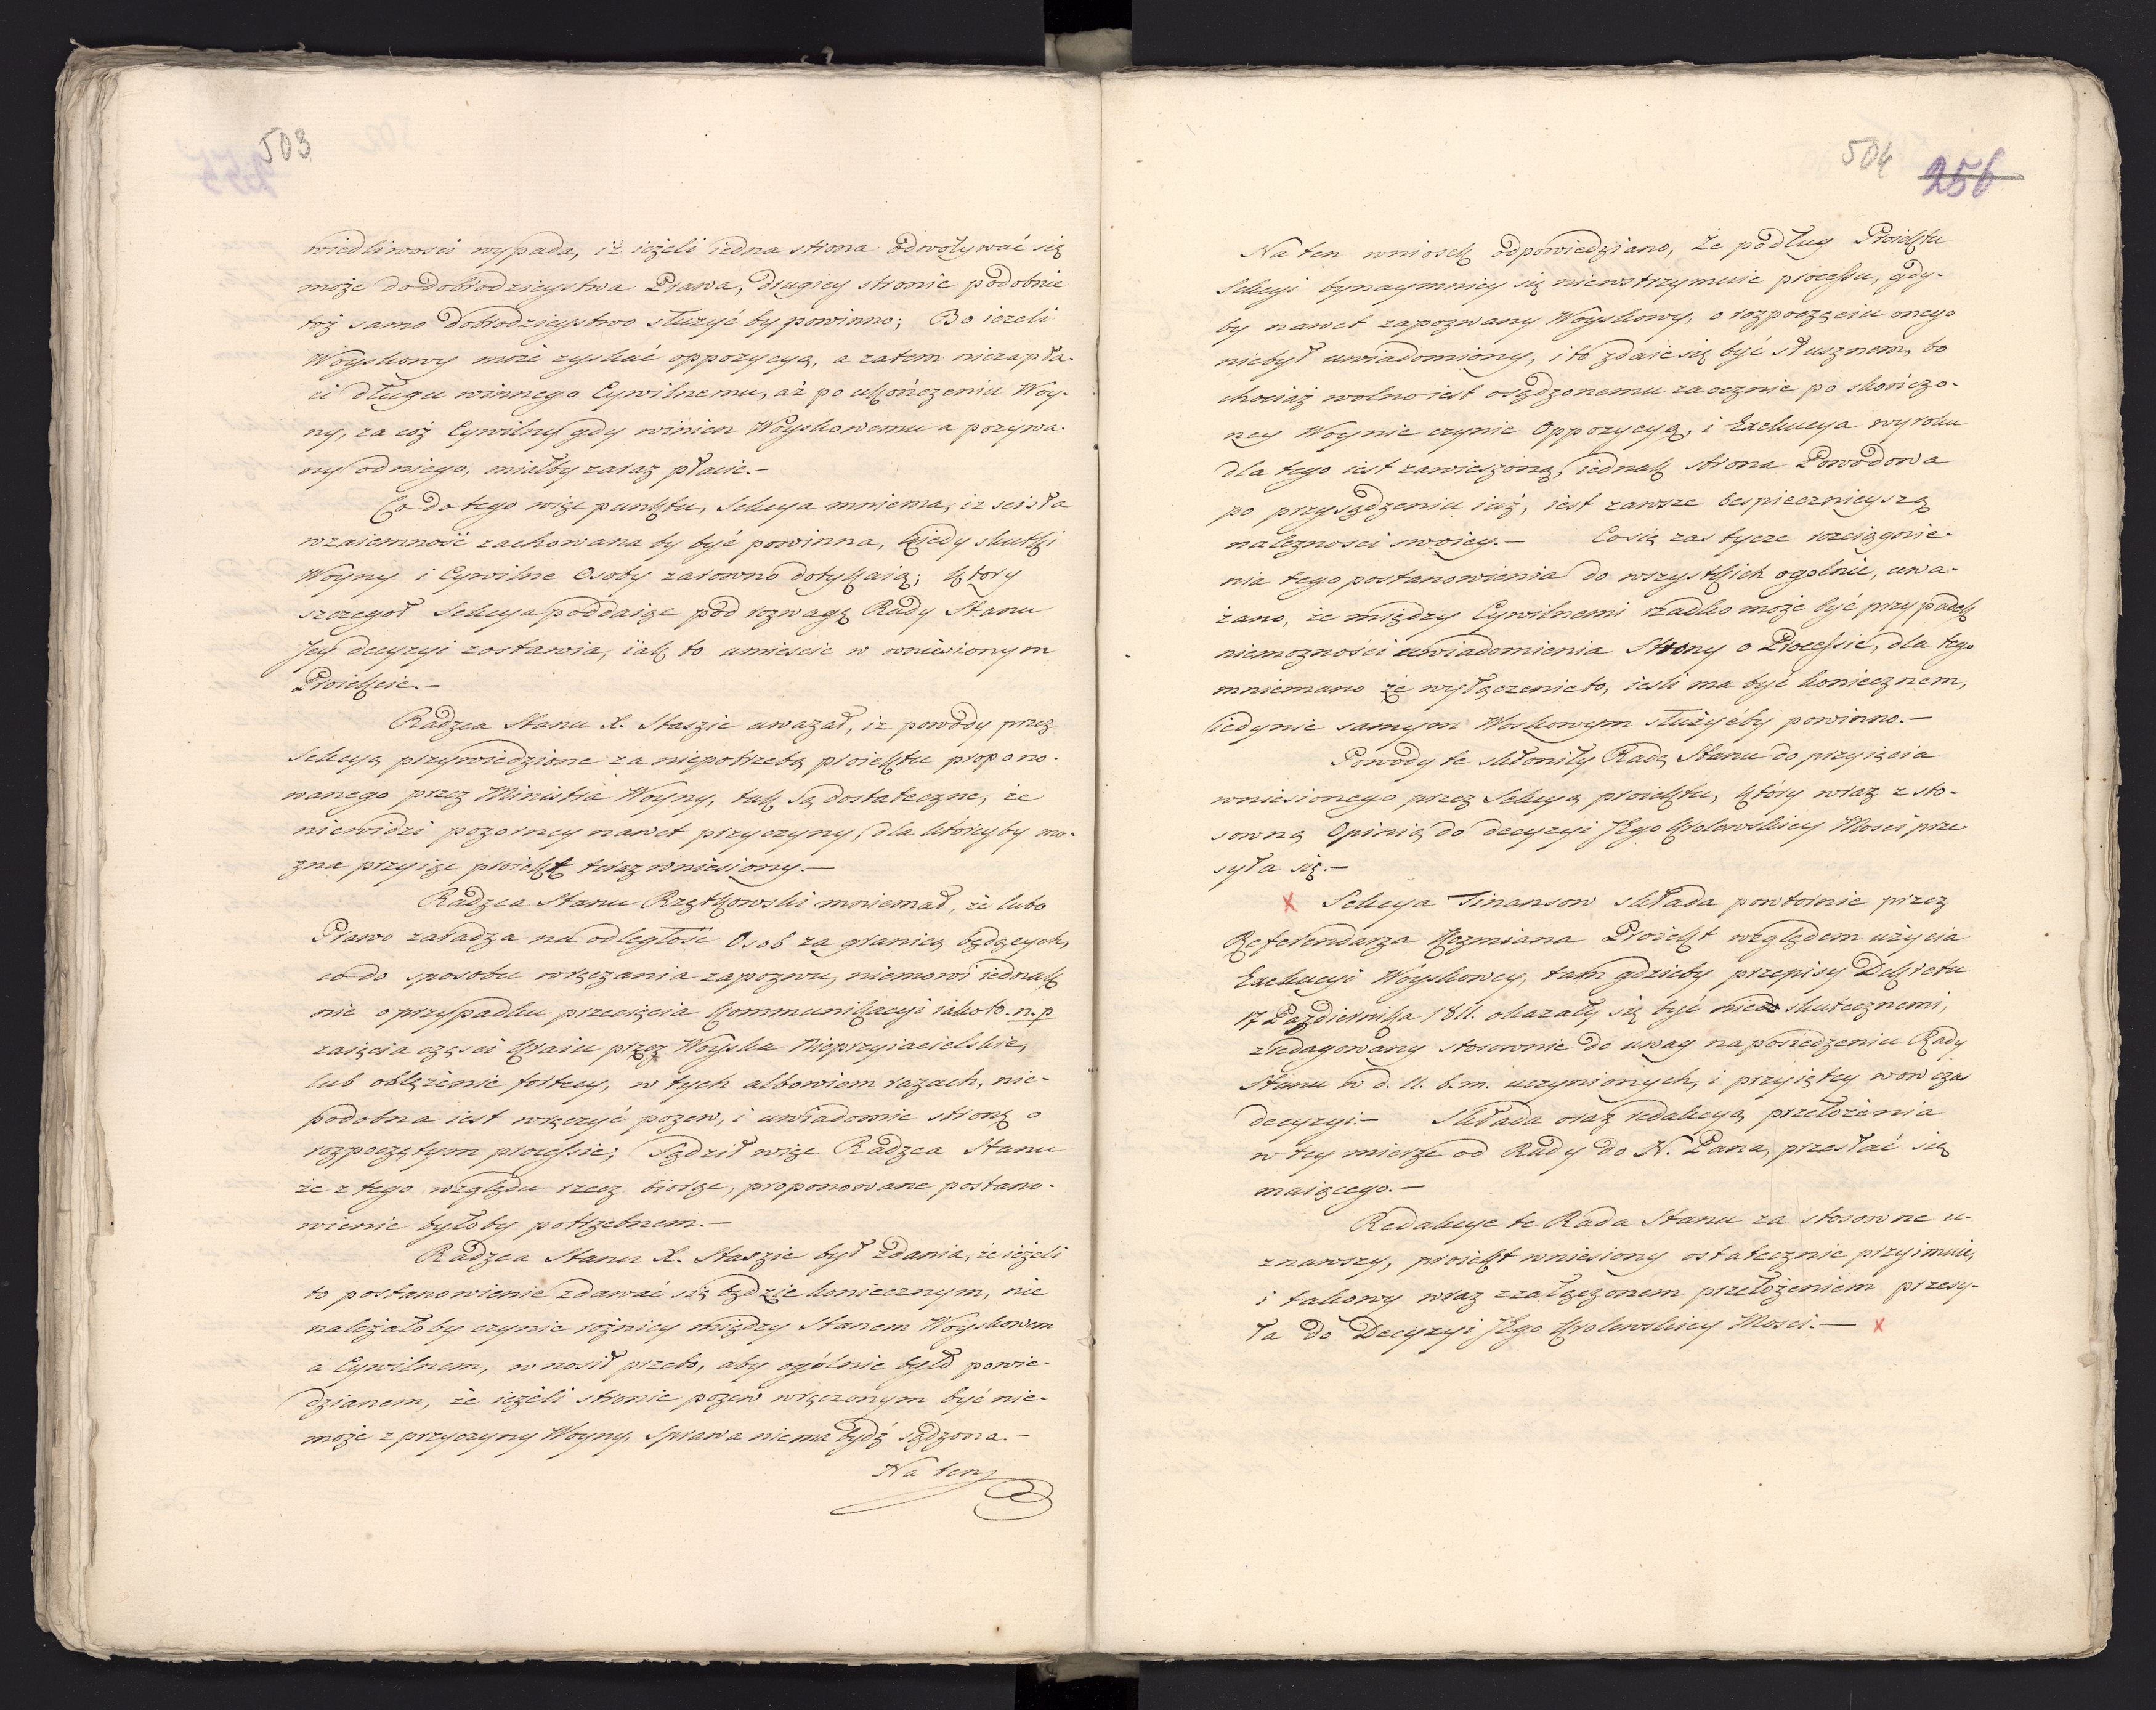 503
wiedliwosci wypada, iż ieżeli iedna strona odwoływać się
może do dobrodzieystwa Prawa, drugiey stronie podobnie
toż samo dobrodzieystwo służyć by powinno; Bo ieżeli
Woyskowy może zyskać oppozycyą, a zatem niezapła-
ci długu winnego Cywilnemu, aż po ukończeniu Woy-
ny, za coż Cywilny gdy winien Woyskowemu a pozywa-
ny od niego, miałby zaraz płacic.-
Co do tego więc punktu, Sekcya mniema, iz scisła
wzaiemność zachowana by być powinna, kiedy skutki
Woyny i Cywilne Osoby zarowno dotykaią; ktory
szczegoł Sekcya poddaiąc pod rozwagę Rady Stanu
Jey decyzyi zostawia, iak to umiescic w wniesionym
Proiekcie.-
Radzca Stanu X. Staszic uwazał, iz powody przez
Sekcyą przywiedzione za niepotrzebą proiektu propono-
wanego przez Ministra Woyny, tak są dostateczne, że
niewidzi pozorney nawet przyczyny, dla któreyby mo-
zna przyiąc proiekt teraz wniesiony.-
Radzca Stanu Rzętkowski mniemał, że lubo
Prawo zaradza na odległość Osob za granicą będących,
co do sposobu wręczania zapozwu, niemowi iednak
nic o przypadku przecięcia kommunikacyi iako to n.p
zaięcia części kraiu przez Woyska Nieprzyiacielskie,
lub oblężenie fortecy, w tych albowiem razach, nie-
podobna iest wręczyć pozew, i uwiadomic stronę o
rozpoczętym processie; Sądził więc Radzca Stanu
że z tego względu rzecz biorąc, proponowane postano-
wienie byłoby potrzebnem.-
Radzca Stanu X. Staszic był zdania, że ieżeli
to postanowienie zdawać się będzie koniecznym, nie
należałoby czynic rożnicy między Stanem Woyskowem
a Cywilnem, wnosił przeto, aby ogólnie było powie-
dzianem, że ieżeli stronie pozew wręczonym być nie-
może z przyczyny Woyny, Sprawa niema bydź sądzona.-
Na ten
504
256
Na ten wniosek odpowiedziano, że podług Proiektu
Sekcyi bynaymniey się niewstrzymuie processu, gdy-
by nawet zapozwany Woyskowy, o rozpoczęciu onego
niebył uwiadomiony, i to zdaie się być słusznem, bo
chociaż wolno iest osądzonemu zaocznie po skończo-
ney Woynie czynic Oppozycyą, i Exekucya wyroku
dla tego iest zawieszoną, iednak strona Powodowa
po przysądzeniu iuż, iest zawsze bespiecznieyszą
nalezności swoiey.- Co się zas tycze rozciągnie-
nia tego postanowienia do wszystkich ogolnie, uwa-
żano, że między Cywilnemi rzadko może być przypadek
niemozności uwiadomienia Strony o Processie, dla tego
mniemano że wyłączenie to, iesli ma być koniecznem,
iedynie samym Woskowym służyćby powinno.-
Powody te skłoniły Radę Stanu do przyięcia
wniesionego przez Sekcyą proiektu, który wraz z sto-
sowną Opinią do decyzyi JEgo Krolewskiey Mosci prze
syła się.-
x Sekcya Finansow składa powtornie przez
Referendarza Kozmiana Proiekt względem użycia
Exekucyi Woyskowey, tam gdzieby przepisy Dekretu
17 Pazdziernika 1811. okazały się być nieskutecznemi,
zredagowany stosownie do uwag na posiedzeniu Rady
Stanu w d. 11. b.m. uczynionych, i przyiętey wow czas
decyzyi.- Składa oraz redakcyą przełożenia
w tey mierze od Rady do N. Pana, przesłać się
maiącego.-
Redakcye te Rada Stanu za stosowne u-
znawszy, proiekt wniesiony ostatecznie przyimuie,
i takowy wraz z załączonem przełożeniem przesy-
ła do Decyzyi JEgo Krolewskiey Mosci.- x